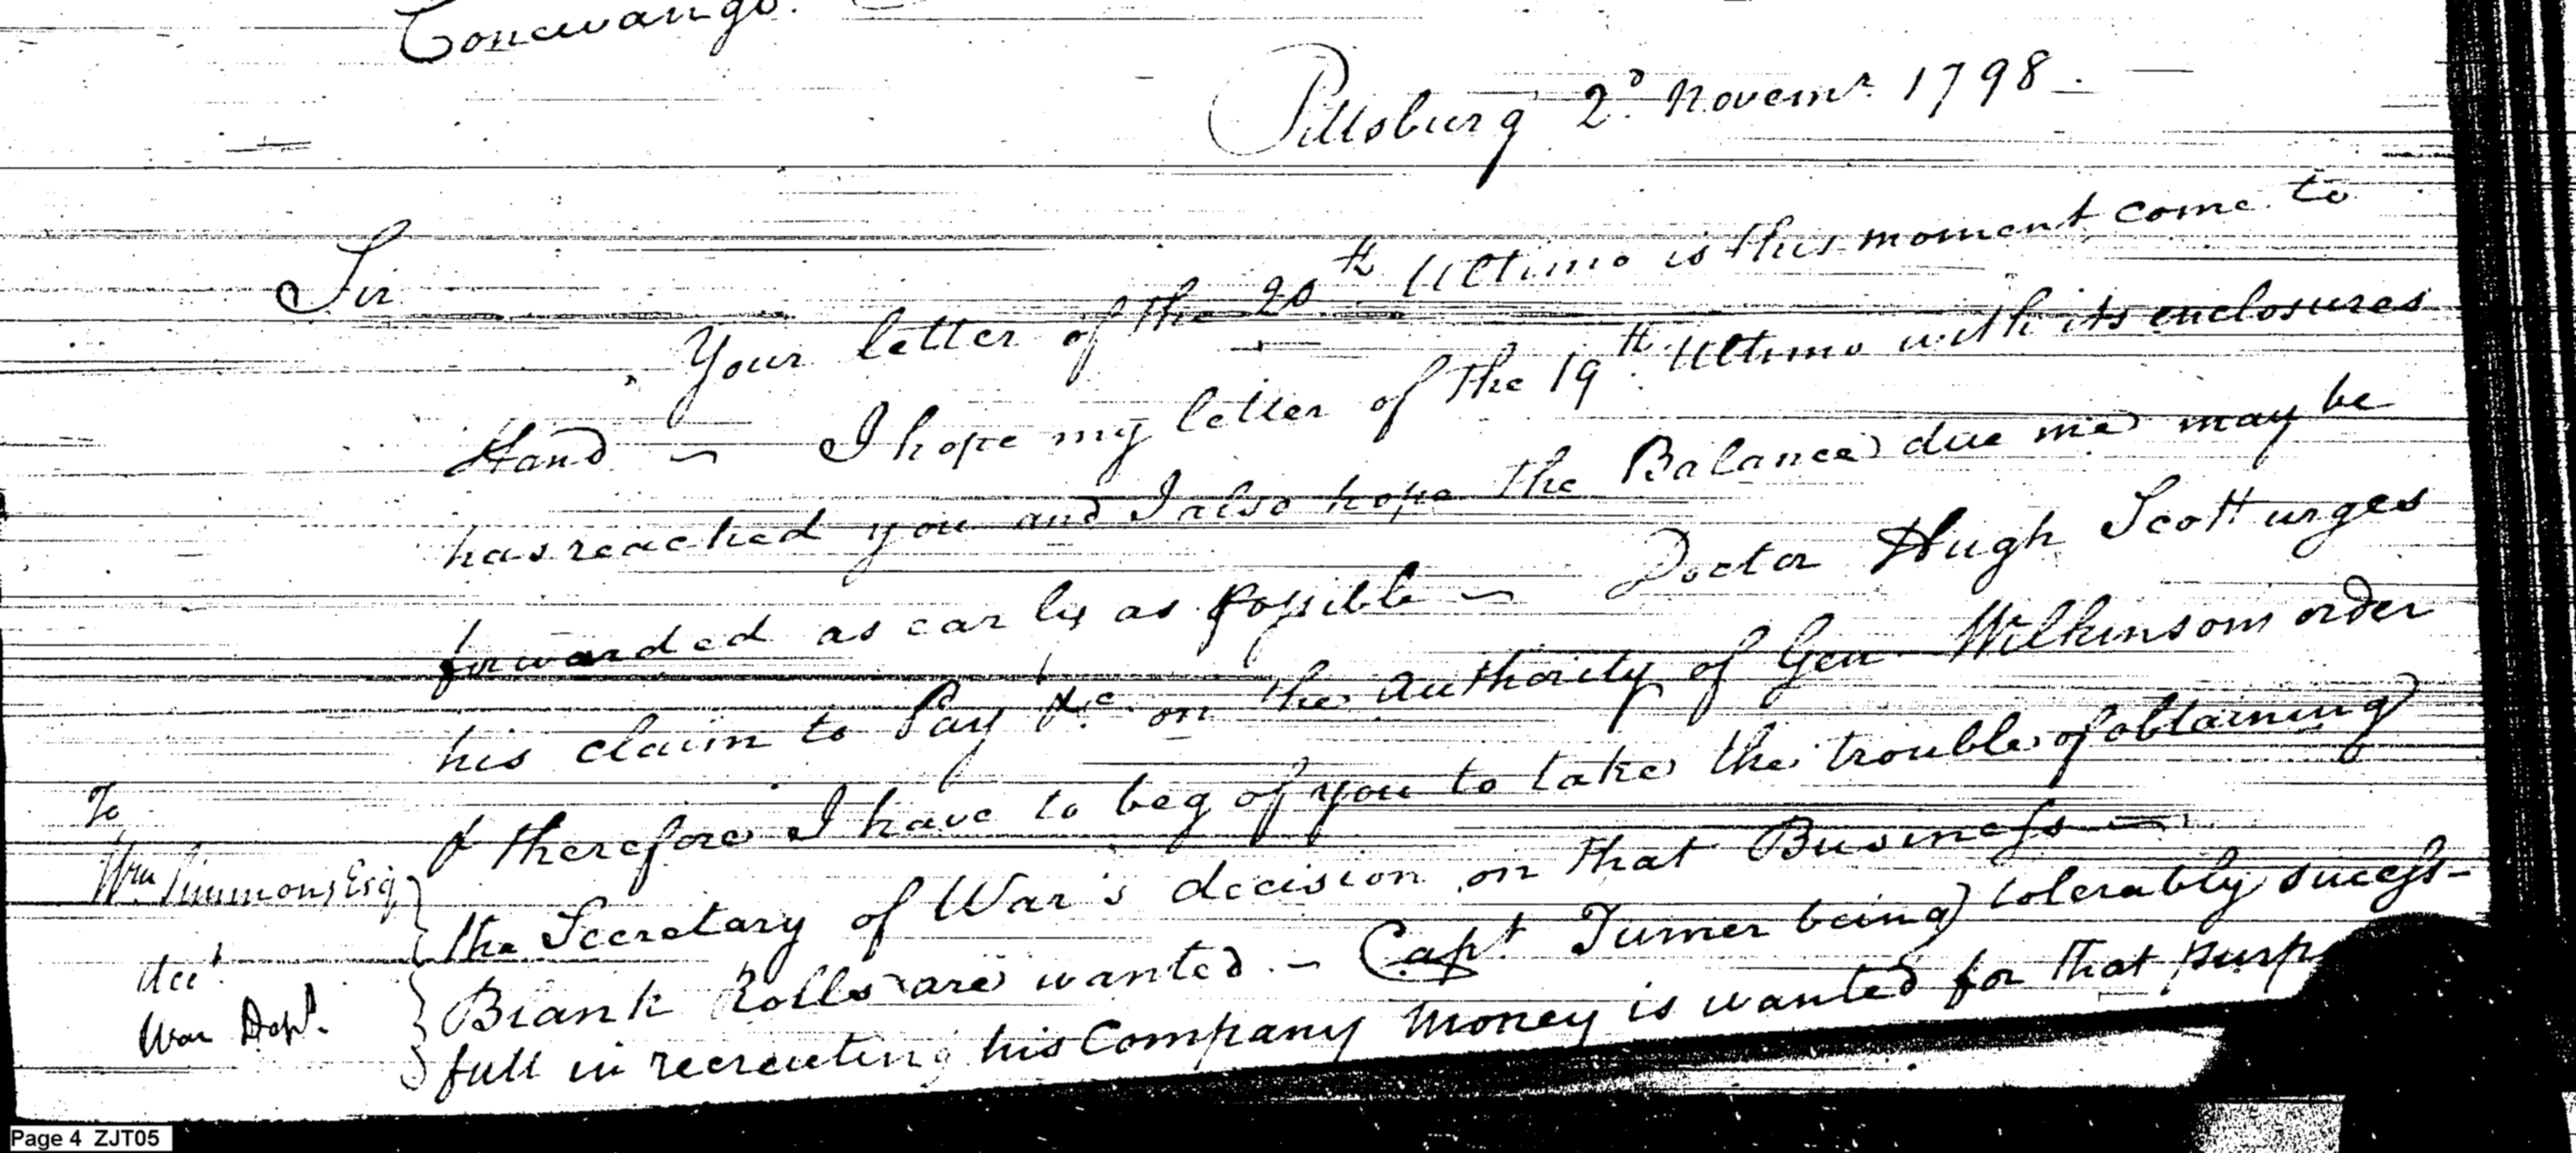 Conewango.
Pittsburg 2d. Novemr. 1798.
Sir
Your letter of the 20th Ultimo is this moment come to
Hand ~ I hope my letter of the 19th. Ultimo with its enclosures
has reached you and I also hope the Balance due me may be
forwarded as early as possible ~ Doctor Hugh Scott urges
his claim to Pay &c. on the authority of Genl. Wilkinsons order
& therefore I have to beg of you to take the trouble of obtaining
the Secretary of War's decision on that Business ~
Blank Rolls are wanted. ~ Capt. Turner being tolerably sucess-
full in recreuting his Company Money is wanted for that purp
To
Wm. Simmons Esq.
Acct.
War Dept.
Page 4 ZJT05